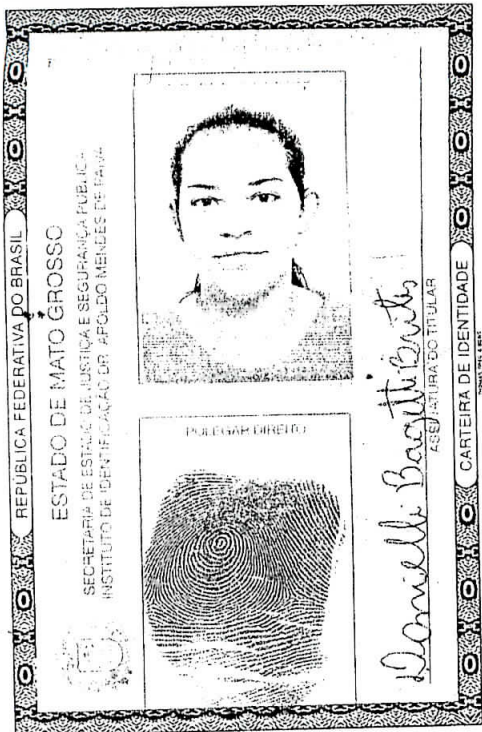 REPÚBLICA FEDERATIVA DO BRASIL
ESTADO DE MATO GROSSO
SECRETARIA DE ESTADO DE JUSTIÇA E SEGURANÇA PÚBLICA
INSTITUTO DE IDENTIFICAÇÃO DR. AROLDO MENDES DE PAIVA
POLEGAR DIREITO
Danielli Bagetti Brites
ASSINATURA DO TITULAR
CARTEIRA DE IDENTIDADE